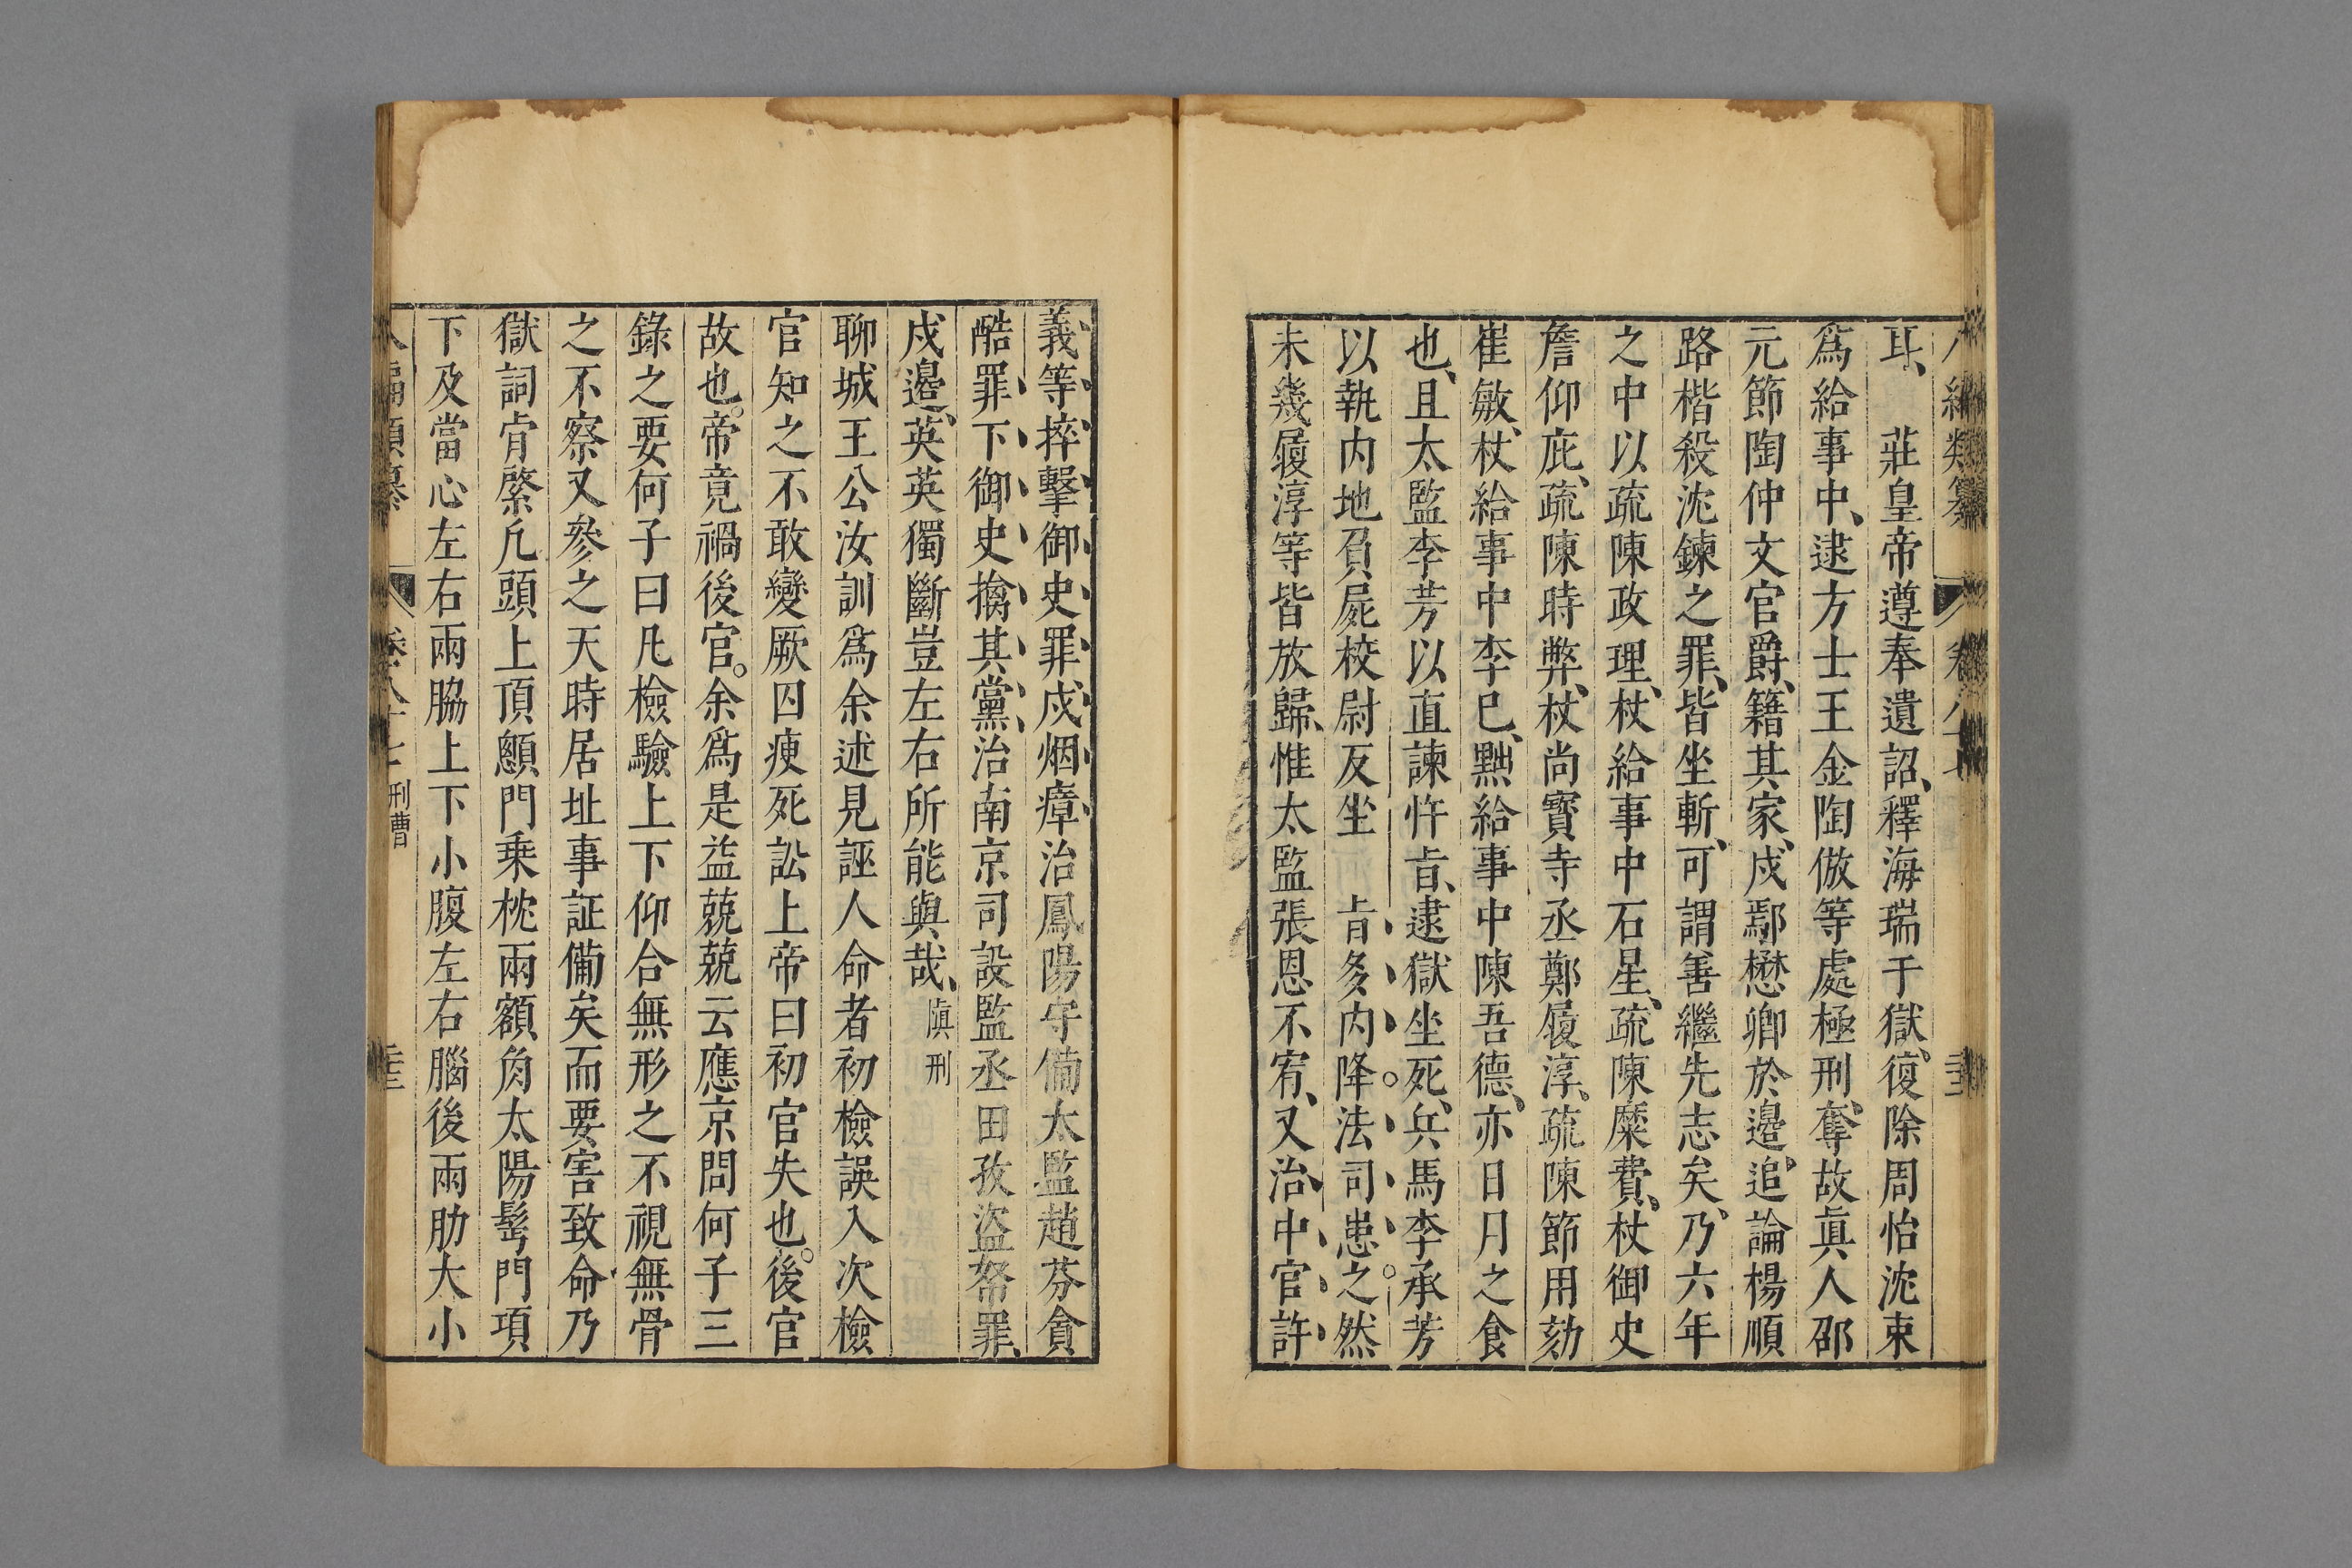 耳、　莊皇帝遵奉遺詔、釋海瑞于獄、復除周怡沈束
爲給事中、逮方士王金陶倣等處極刑、奪故眞人邵
元節陶仲文官爵、籍其家、戍鄢懋卿於邊、追論楊順
路楷殺沈鍊之罪、皆坐斬、可謂善繼先志矣、乃六年
之中以疏陳政理、杖給事中石星、疏陳糜費、杖御史
詹仰庇、疏陳時弊、杖尚寳寺丞鄭履淳、疏陳節用劾
崔敏、杖給事中李已、黜給事中陳吾德、亦日月之食
也、且太監李芳以直諫忤旨、逮獄坐死、兵馬李承芳
以執内地負屍校尉反坐　旨多内降法司患之然
未幾履淳等皆放歸、惟太監張恩不宥、又治中官許
義等捽擊御史罪戍烟瘴治鳳陽守備太監趙芬貪
酷罪下御史擒其黨治南京司設監丞田孜盜帑罪、
戍邊、英英獨斷豈左右所能與哉、慎刑
聊城王公汝訓爲余述見誣人命者初檢誤入次檢
官知之不敢變厥囚瘐死訟上帝曰初官失也。後官
故也。帝竟禍後官。余爲是益兢兢云應京問何子三
錄之要何子曰凡檢驗上下仰合無形之不視無骨
之不察又參之天時居址事証備矣而要害致命乃
獄詞肯綮凡頭上頂顖門乗枕兩額角太陽髩門項
下及當心左右兩脇上下小腹左右腦後兩肋大小
刑曹